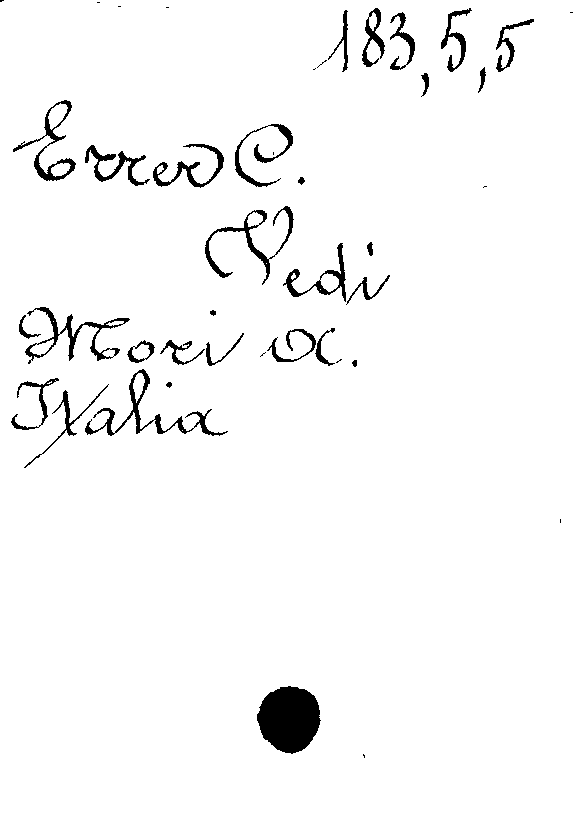 183,5,5
Errer C.
Vedi
Mori A.
Italia